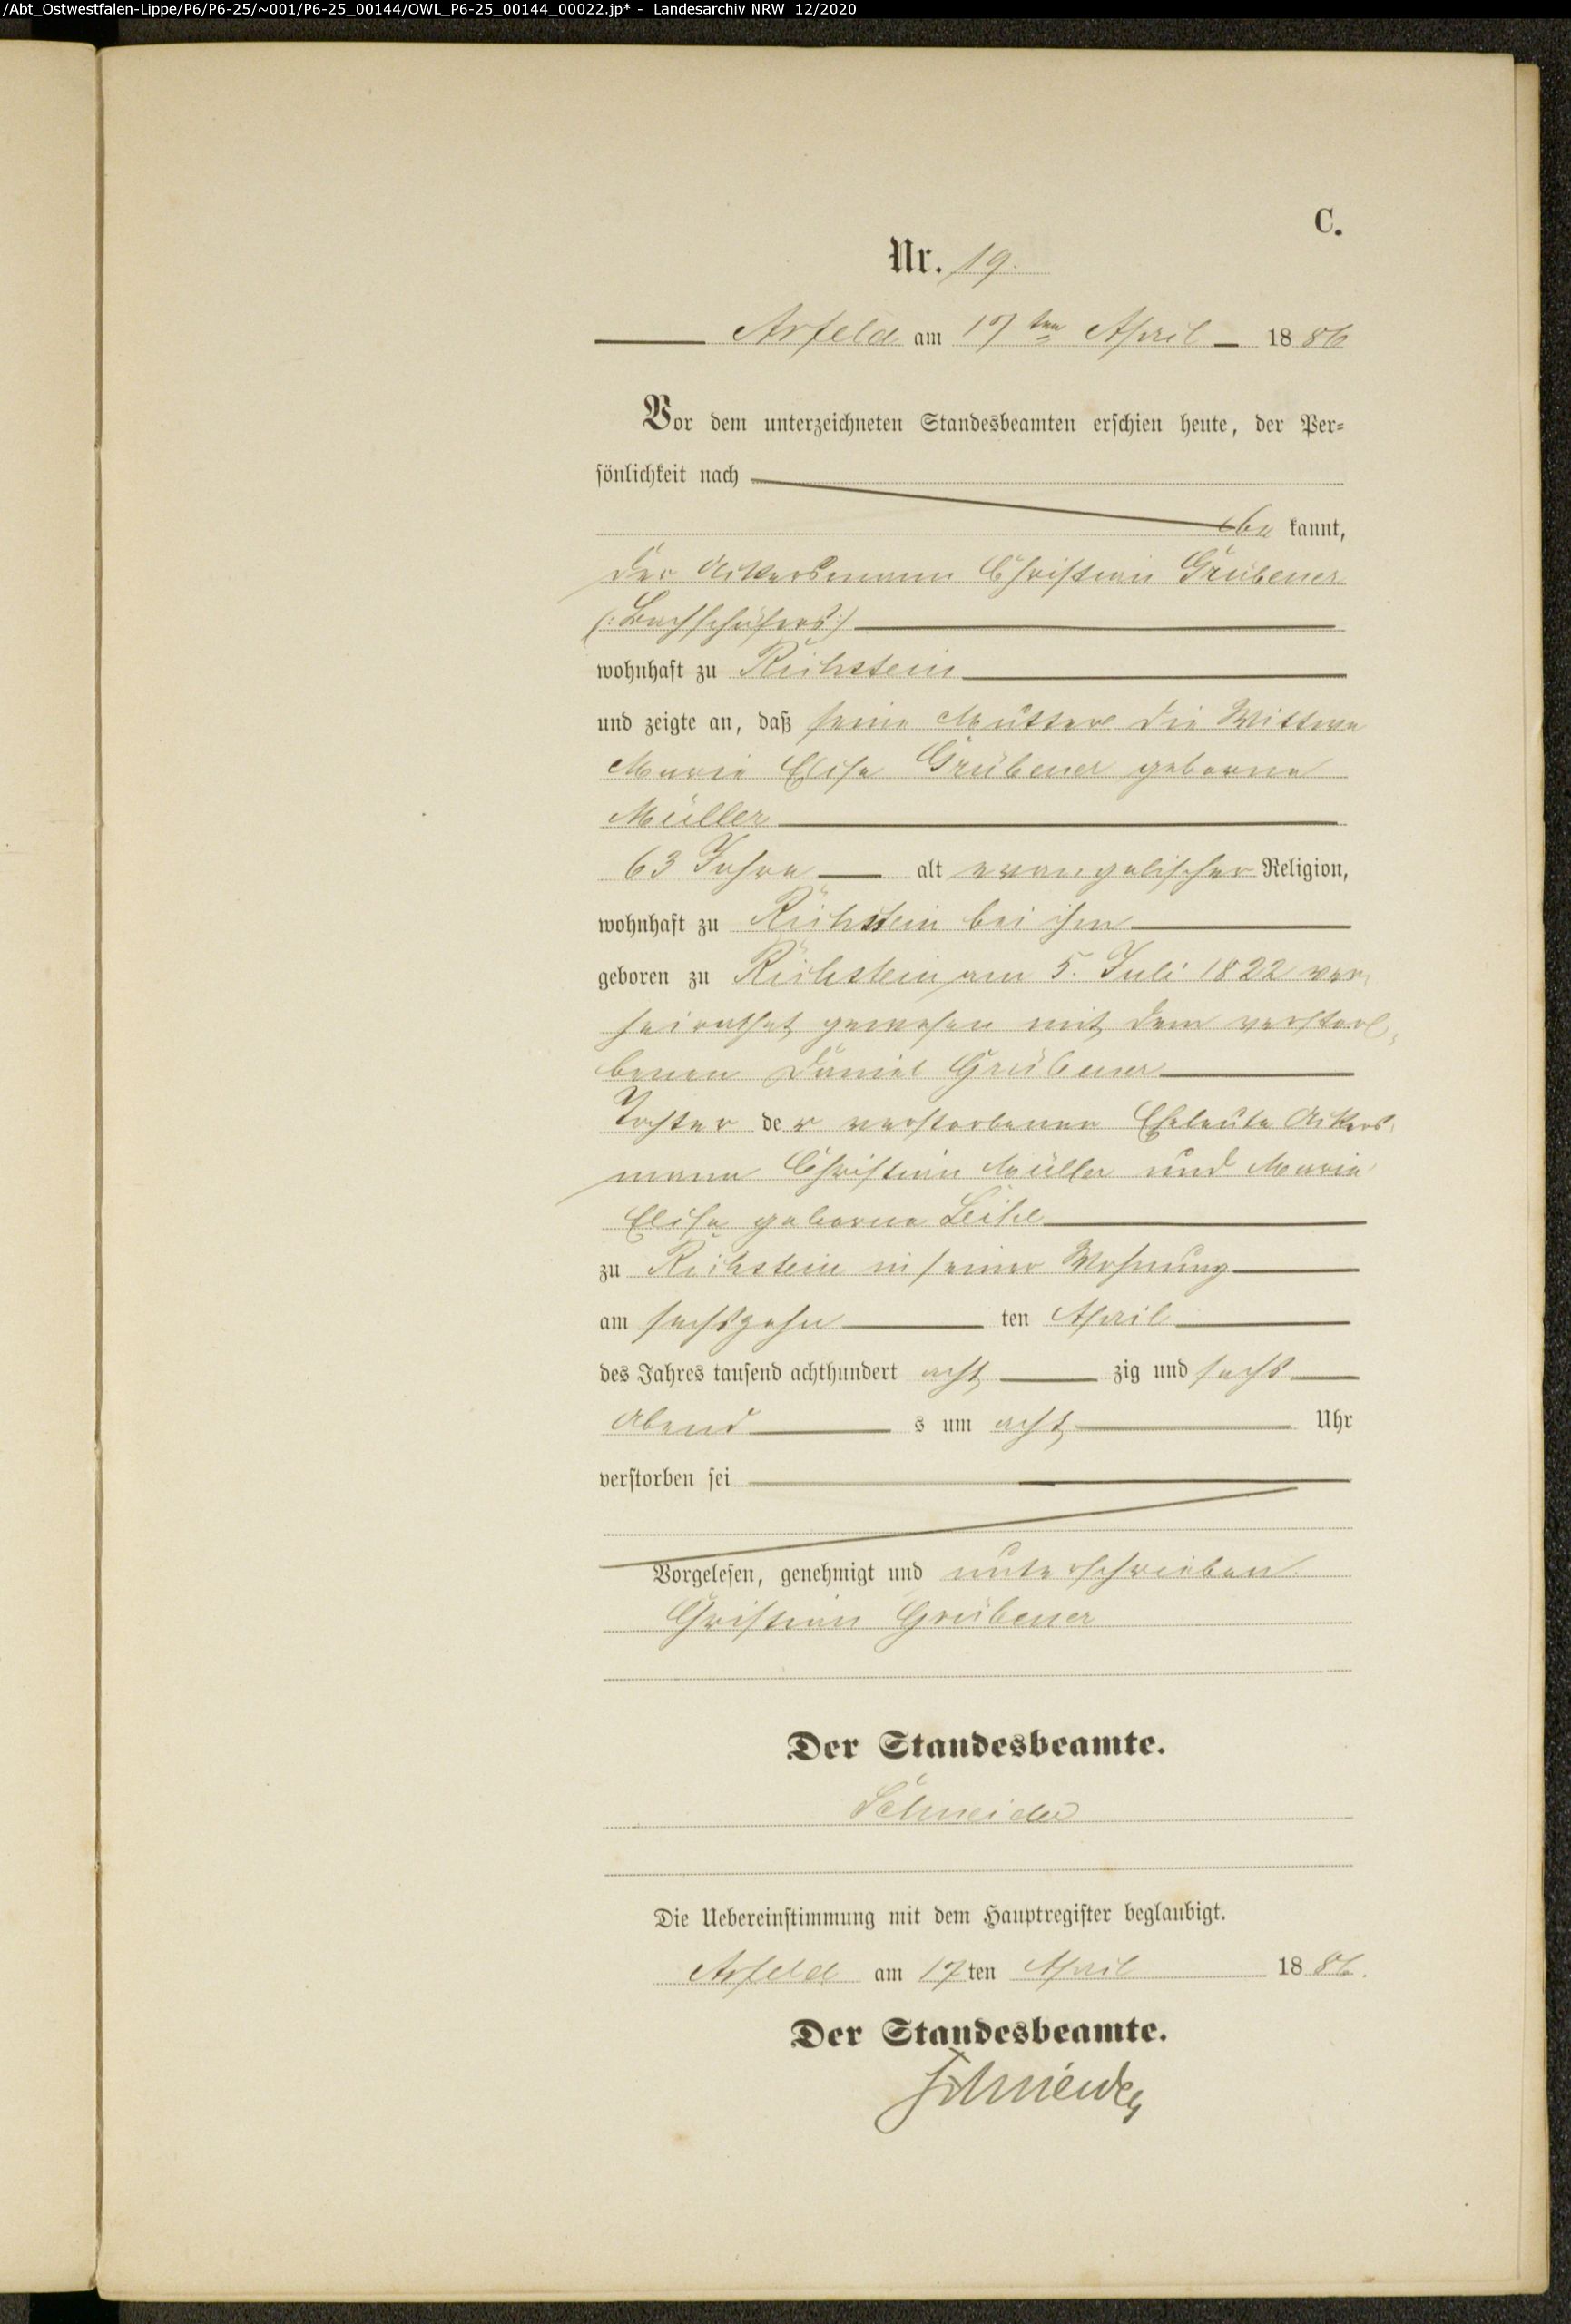 /Abt_Ostwestfalen-Lippe/P6/P6-25/~001/P6-25_00144/OWL_P6-25_00144_00022.jp* - Landesarchiv NRW 12/2020
C.
Nr. 19.
Arfeld am 17ten April 1886
Vor dem unterzeichneten Standesbeamten erschien heute, der Per-
sönlichkeit nach
be kannt,
der Ackersmann Christian Grübener
wohnhaft zu Richstein
und zeigte an, daß seine Mutter die Wittwe
Marie Elise Grübener geborne
Müller
63 Jahre alt evangelischer Religion,
wohnhaft zu Richstein bei ihm
geboren zu Richstein am 5. Juli 1822 ver-
heirathet gewesen mit dem verstor-
benen Daniel Grübener
Tochter der verstorbenen Eheleute Ackers-
mann Christian Müller und Marie
Elise geborne
zu Richstein in seiner Wohnung
am sechszehn ten April
des Jahres tausend achthundert acht zig und sechs
Abend s um acht Uhr
verstorben sei
Vorgelesen, genehmigt und unterschrieben
Christian Grübener
Der Standesbeamte.
Schneider
Die Uebereinstimmung mit dem Hauptregister beglaubigt.
Arfeld am 17ten April 1886.
Der Standesbeamte.
Schneider